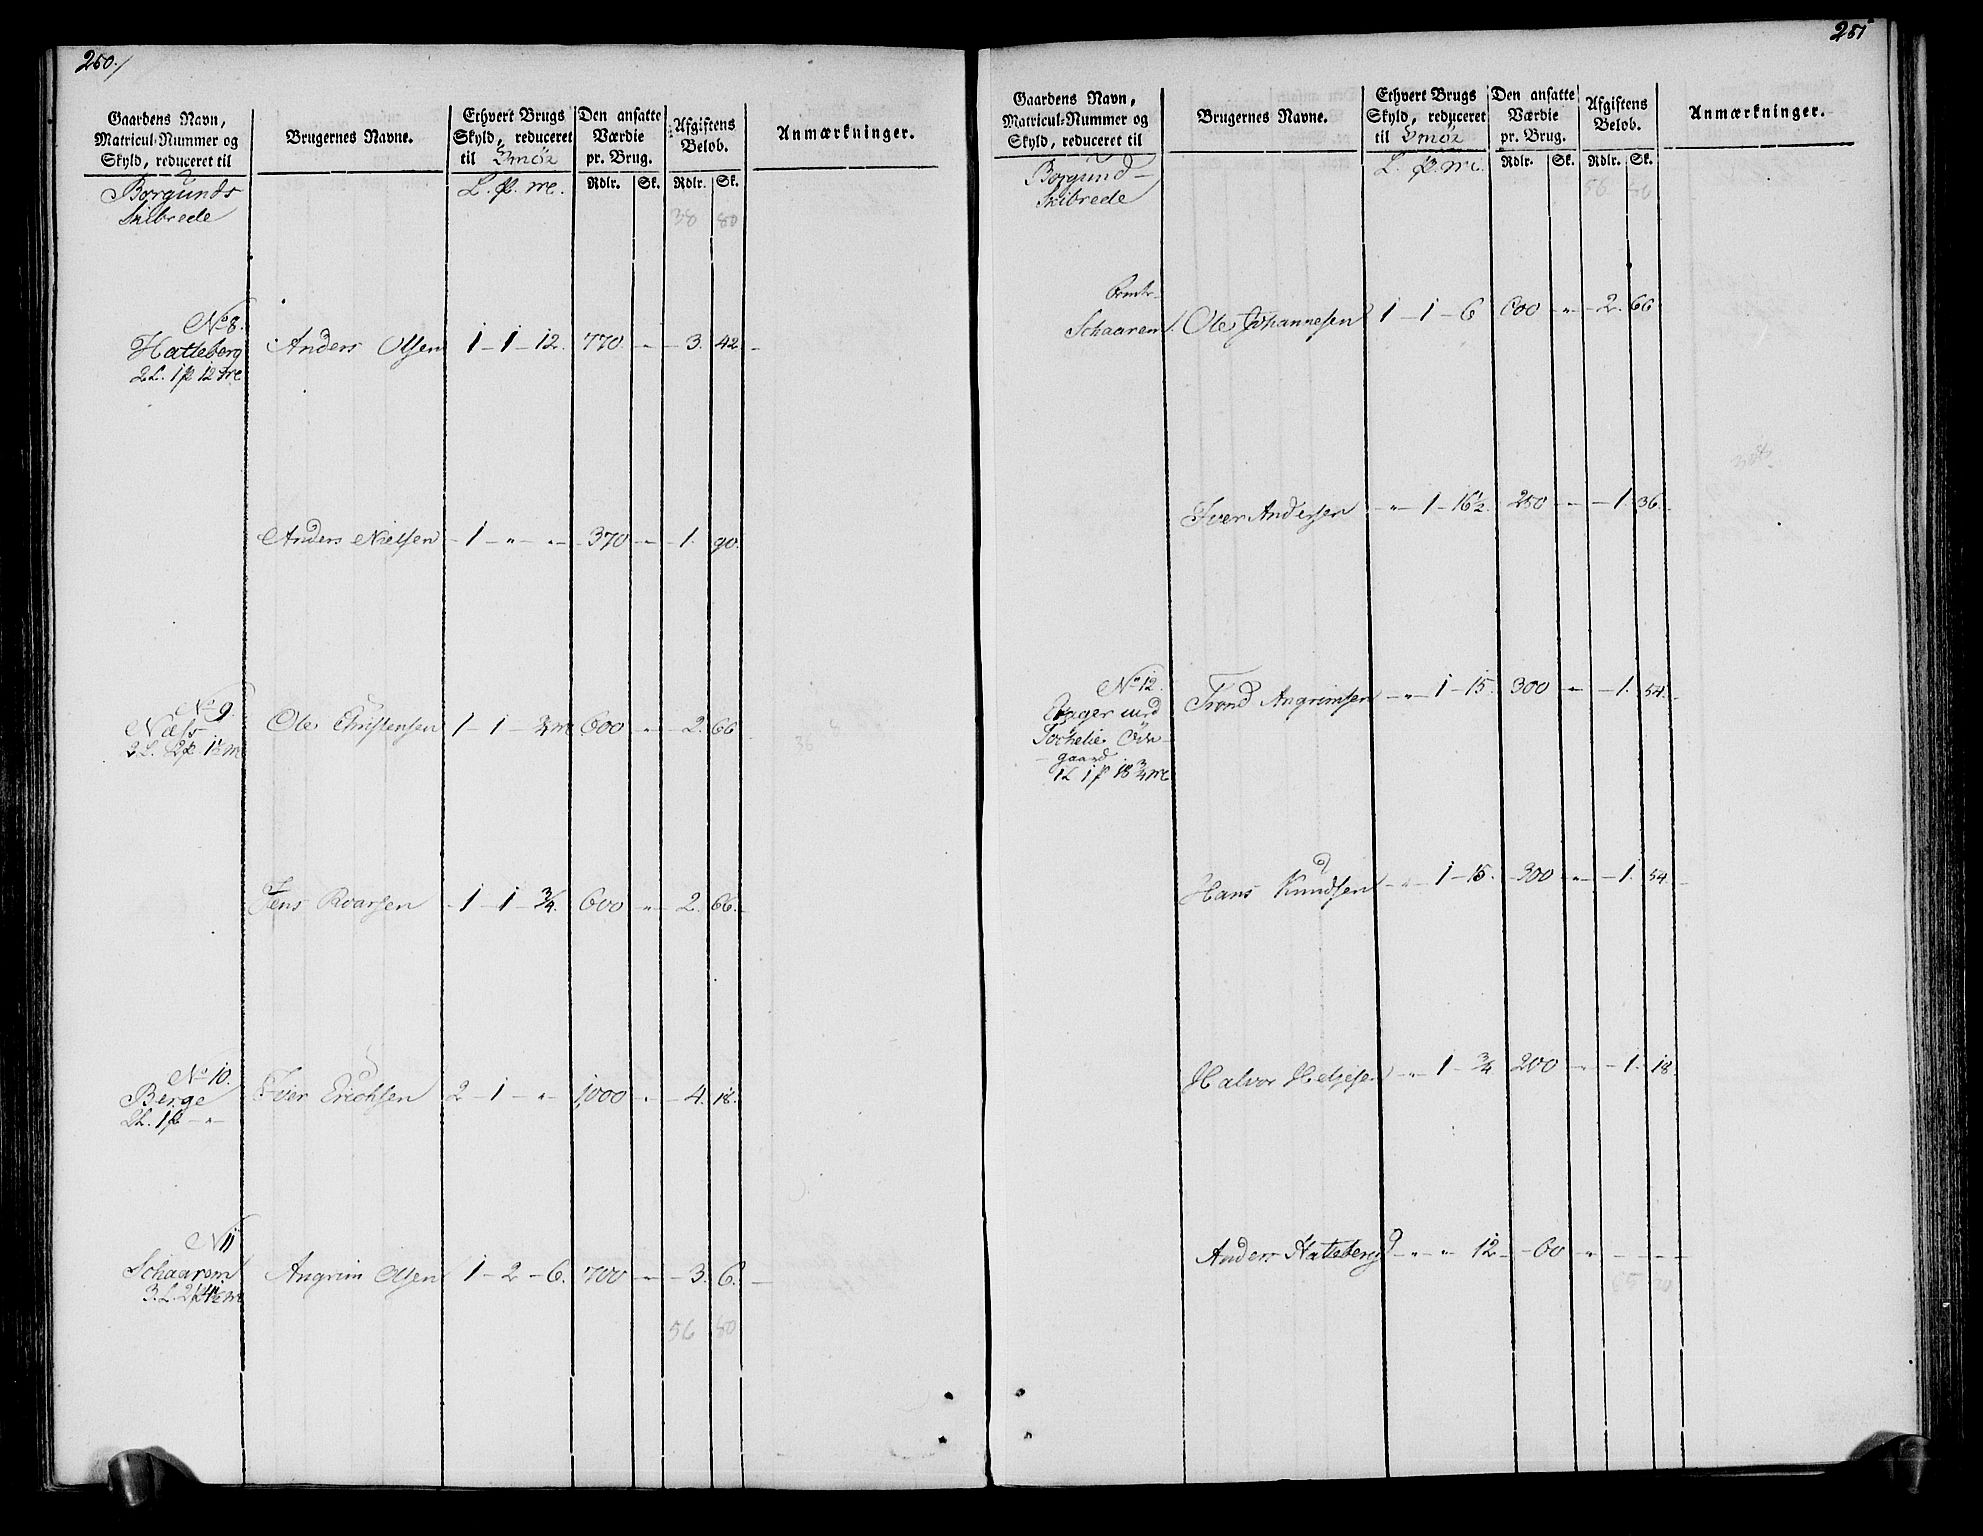 250./
Gaardens Navn, Matricul-Nummer og Skyld, reduceret til
Brugernes Navne.
Ethvert Brugs Skyld, reduceret til Smør
Den ansatte Værdie pr. Brug.
Afgiftens Beløb.
Anmærkninger.
L. p. me.
Rdlr. Sk. Rdlr. Sk.
Borgunds
Skibrede
38 80
No 8.
Hatleberg Anders Olsen 1 - 1 - 12. 770 - " - 3. 42 -
2 L. 1 p 12 me
Anders Nielsen - 1 - " - " - 370 - " - 1. 90.
No 9.
Næss Ole Christensen 1 - 1 - 3/4 me 600 - " - 2. 66
2 L. 2 p 1½ me
Jens Roarsen - 1 - 1 - 3/4. 600 - " - 2. 66. -
No 10.
Berge Iver Erichsen 2 - 1 - " - 1000 - " - 4. 18.
2 L. 1 p - " -
N 11
Schaarem Angrim Olsen 1 - 2 - 6. 700 - " - 3. 6. -
56 80
251
Gaardens Navn, Matricul-Nummer og Skyld, reduceret til
Brugernes Navne.
Ethvert Brugs Skyld, reduceret til Smør
Den ansatte Værdie pr. Brug.
Afgiftens Beløb.
Anmærkninger.
L. p. me.
Rdlr. Sk. Rdlr. Sk.
Borgund-
Skibrede
56 80
Schaarem Ole Johannesen 1 - 1 - 6 600 - " - 2. 66
Iver Andersen - " - 1 - 16½. 250 - " - 1. 36 -
No 12. Trond Angrimsen - " - 1 - 15. 300 - " - 1. 54. -
gaard
1 L 1 p 18 3/4 me
Hans Knudsen - " - 1 - 15. 300 - " - 1. 54 -
Halvor Helgesen - " - 1 - 3/4 200 - " - 1. 18
Anders Hatleberg - " - " 12 - 60 " - - -